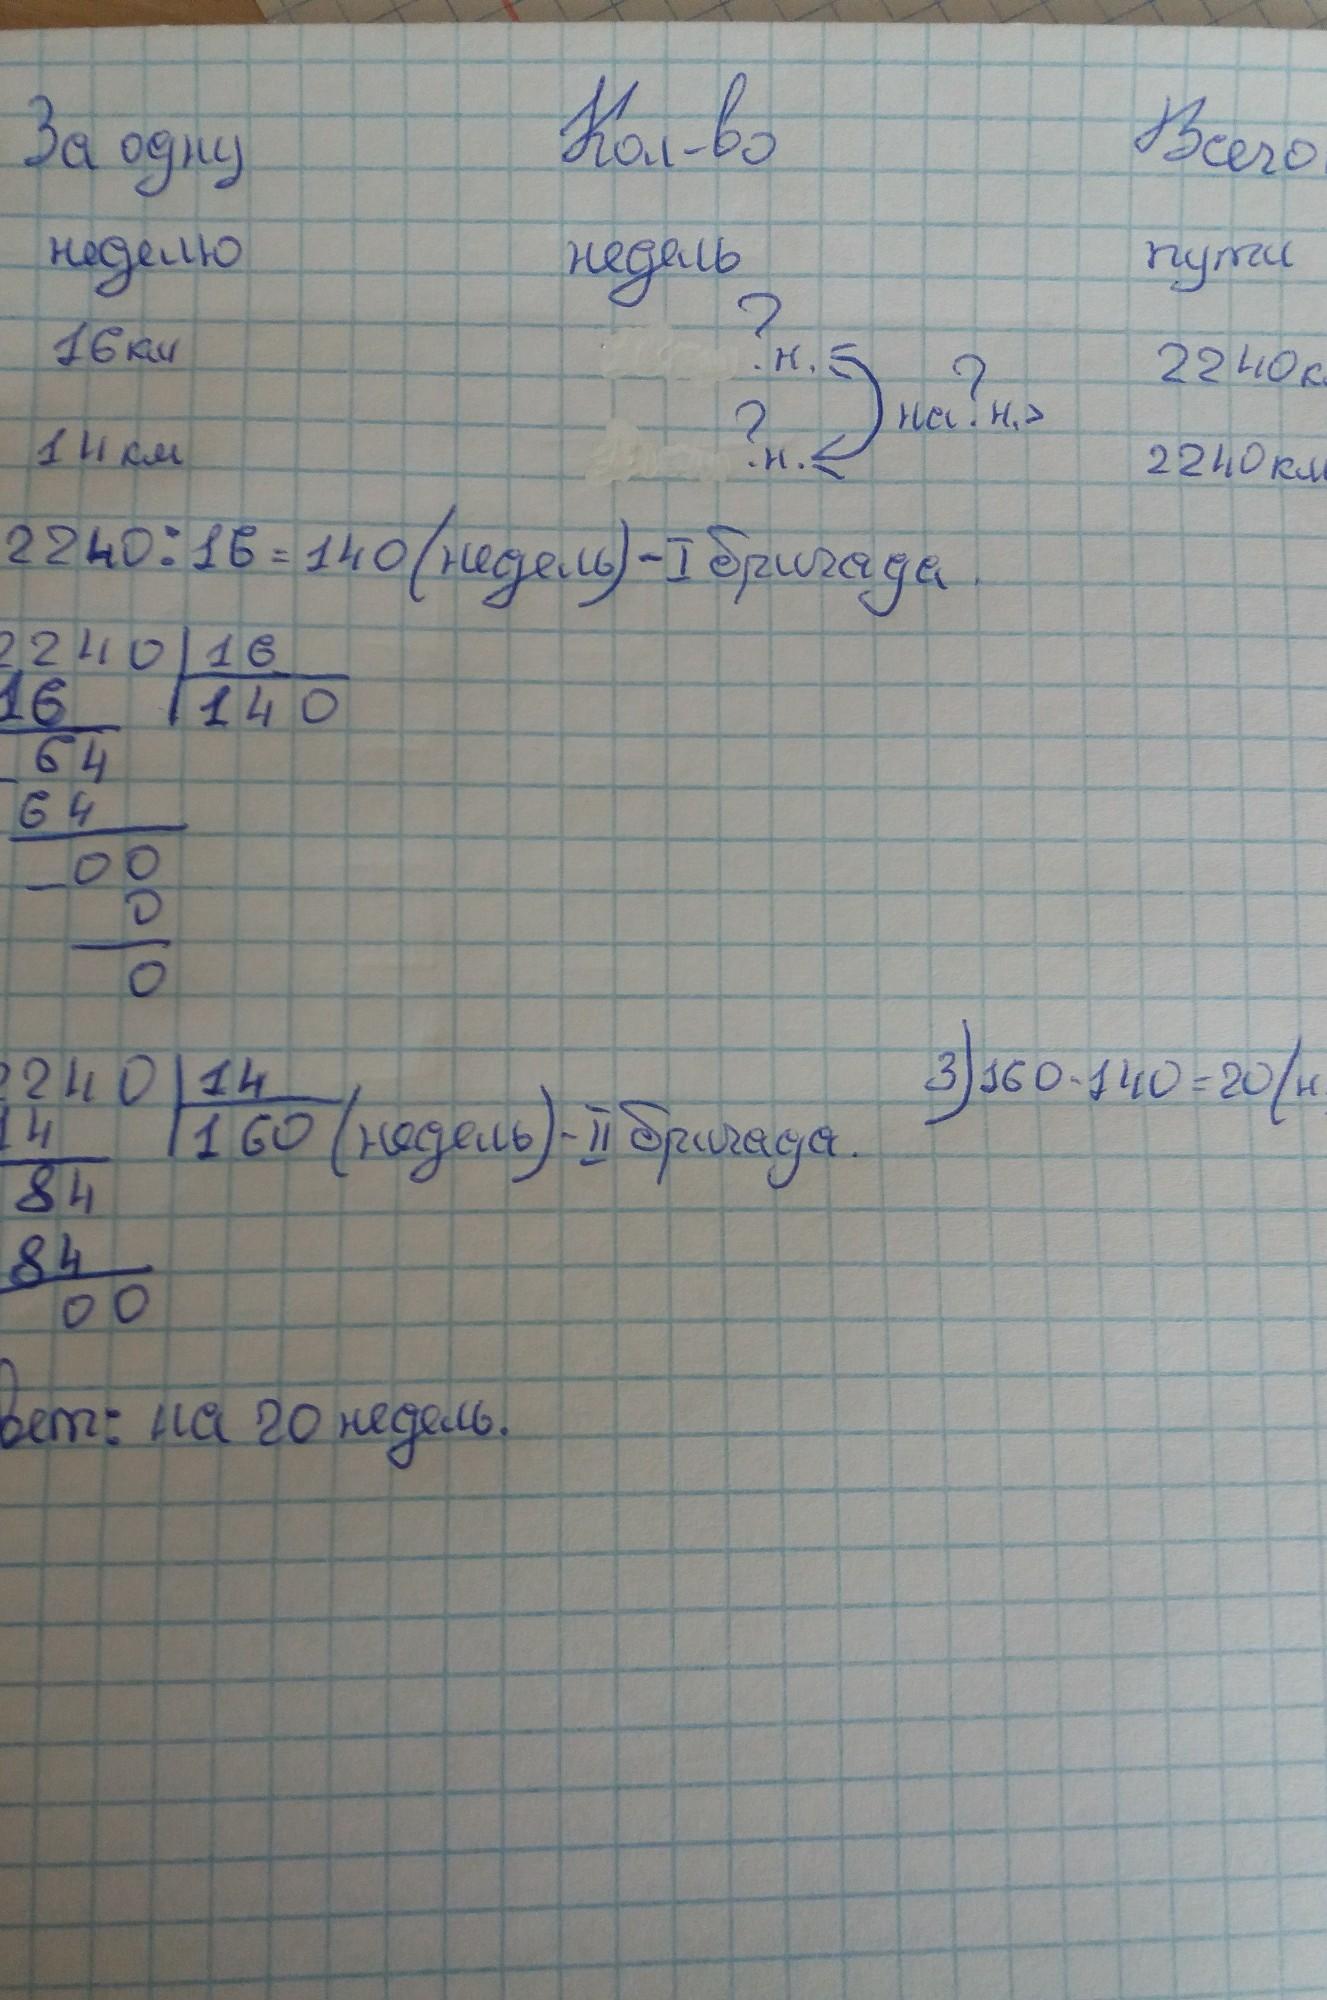 За одну Кол-во Всего
неделю недель пути
?
16км .н. 2240к
?
на . н. >
?
14км .н. 2240км
2240:16=140(недель)-I бригада.
2240 16
16 140
64
64
00
0
0
2240 14 3)160-140=20(н
14 160(недель)-II бригада.
84
84
00
вет: на 20 недель.